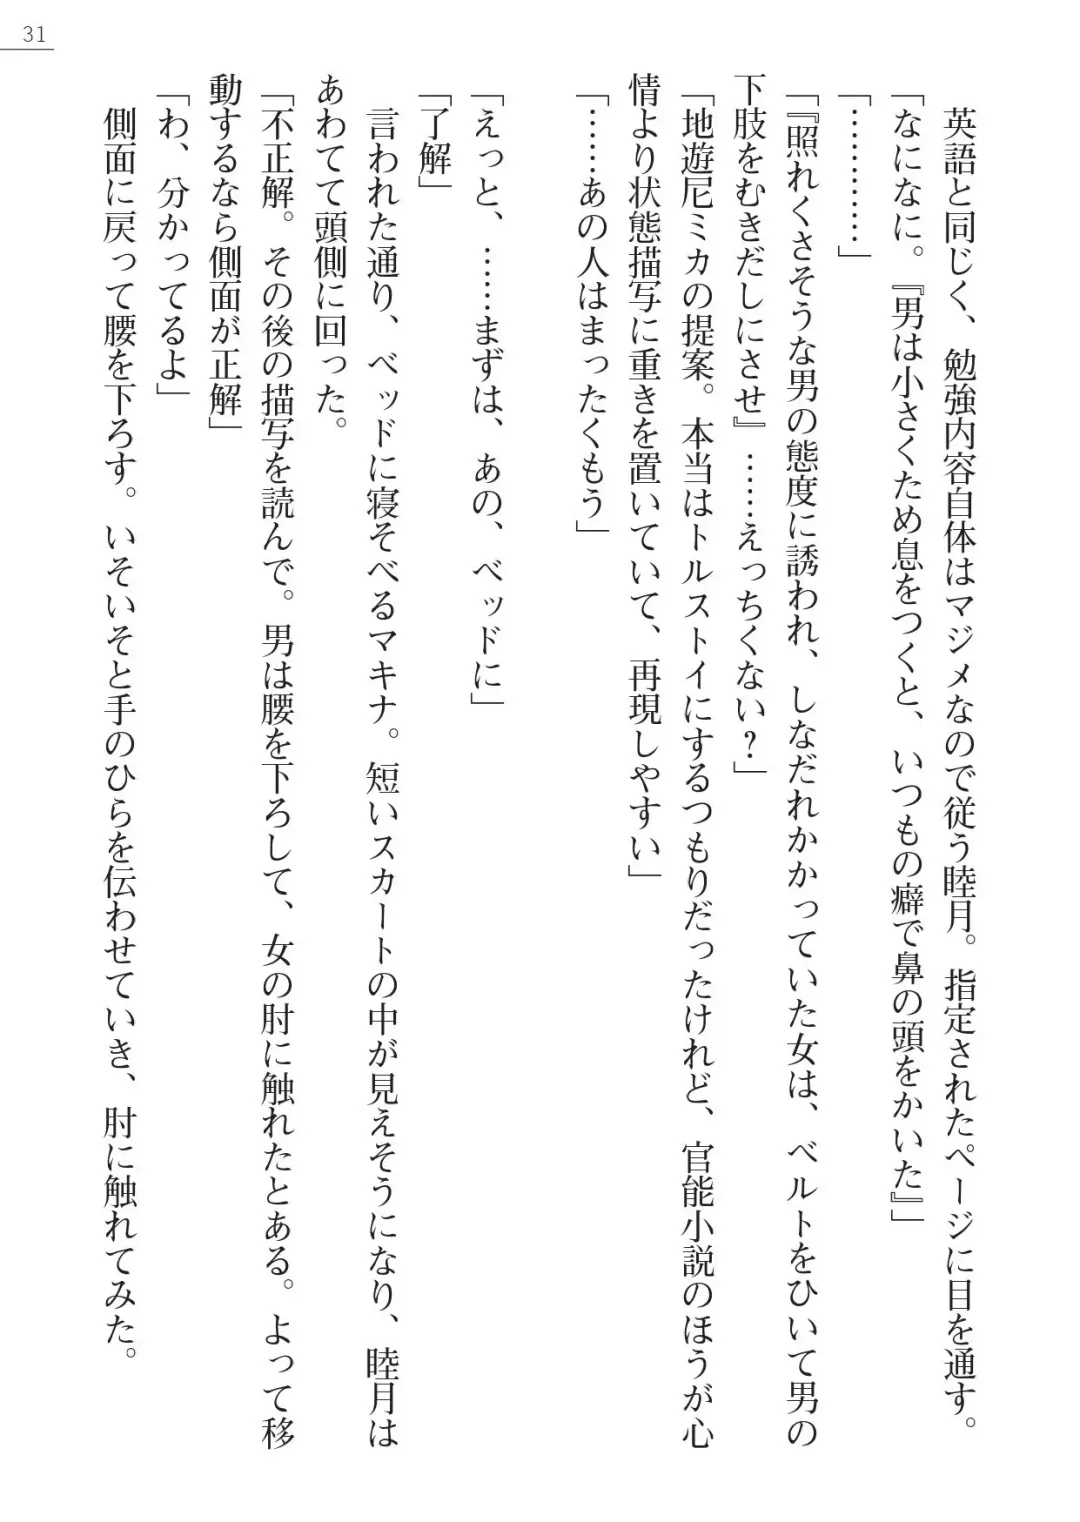 31
英語と同じく、勉強内容自体はマジメなので従う睦月。指定されたページに目を通す。
「なになに。『男は小さくため息をつくと、いつもの癖で鼻の頭をかいた』」
「…………」
「『照れくさそうな男の態度に誘われ、しなだれかかっていた女は、ベルトをひいて男の
下肢をむきだしにさせ』……えっちくない?」
「地遊尼ミカの提案。本当はトルストイにするつもりだったけれど、官能小説のほうが心
情より状態描写に重きを置いていて、再現しやすい」
「……あの人はまったくもう」
「えっと、……まずは、あの、ベッドに」
「了解」
言われた通り、ベッドに寝そべるマキナ。短いスカートの中が見えそうになり、睦月は
あわてて頭側に回った。
「不正解。その後の描写を読んで。男は腰を下ろして、女の肘に触れたとある。よって移
動するなら側面が正解」
「わ、分かってるよ」
側面に戻って腰を下ろす。いそいそと手のひらを伝わせていき、肘に触れてみた。